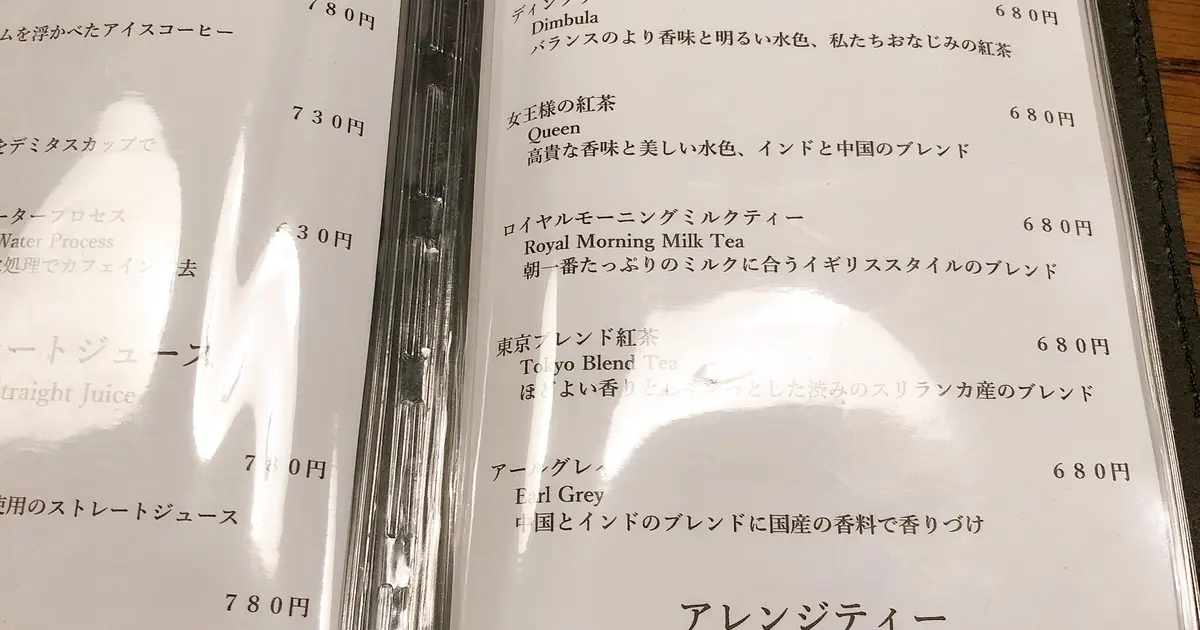 780円
ムを浮かべたアイスコーヒー
730円
をデミタスカップで
ータープロセス
Water Process
630円
処理でカフェイン 去
ートジュース
Straight Juice
780円
使用のストレートジュース
780円
ディンブラ
680円
Dimbula
バランスのより香味と明るい水色、私たちおなじみの紅茶
女王様の紅茶
680円
Queen
高貴な香味と美しい水色、インドと中国のブレンド
ロイヤルモーニングミルクティー
680円
Royal Morning Milk Tea
朝一番たっぷりのミルクに合うイギリススタイルのブレンド
東京ブレンド紅茶
680円
Tokyo Blend Tea
ほどよい香りと っとした渋みのスリランカ産のブレンド
アールグレイ
680円
Earl Grey
中国とインドのブレンドに国産の香料で香りづけ
アレンジティー